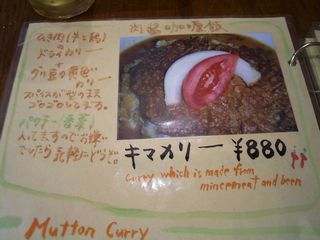 肉醤咖喱飯
ひき肉(牛と鶏)
の
ドライカリー
+
ダリ豆の黄色い
カリー
スパイスが
ゴロゴロしてます。
パクチー(香菜)
入ってますのでお嫌い
でしたら気軽にどうぞ。
キマカリー ¥880
curry which is made from
mincemeat and been
Mutton Curry